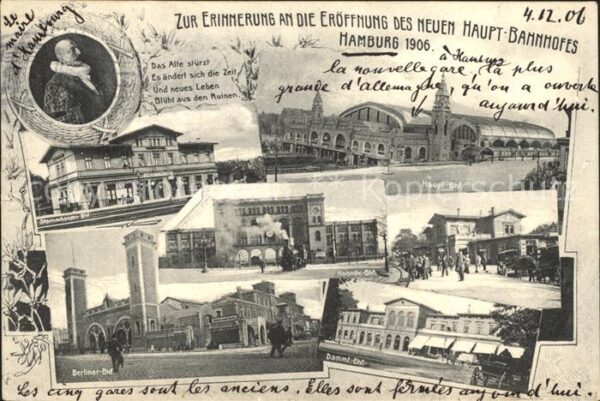 le
maire
d'Hambourg
ZUR ERINNERUNG AN DIE ERÖFFNUNG DES NEUEN HAUPT-BAHNHOFES
HAMBURG 1906.
4.12.06
à Hambourg
la nouvelle gare, la plus
grande d'allemagne, qu'on a ouverte
aujourd'hui.
Das Alte stürzt
Es ändert sich die Zeit,
Und neues Leben
Blüht aus den Ruinen.
Haupt-Bhf.
Sternschanze-Bhf.
Hannöv.-Bhf.
Berliner-Bhf.
Dammt.-Bhf.
Les cinq gares sont les anciens. Elles sont fermées aujourd'hui.